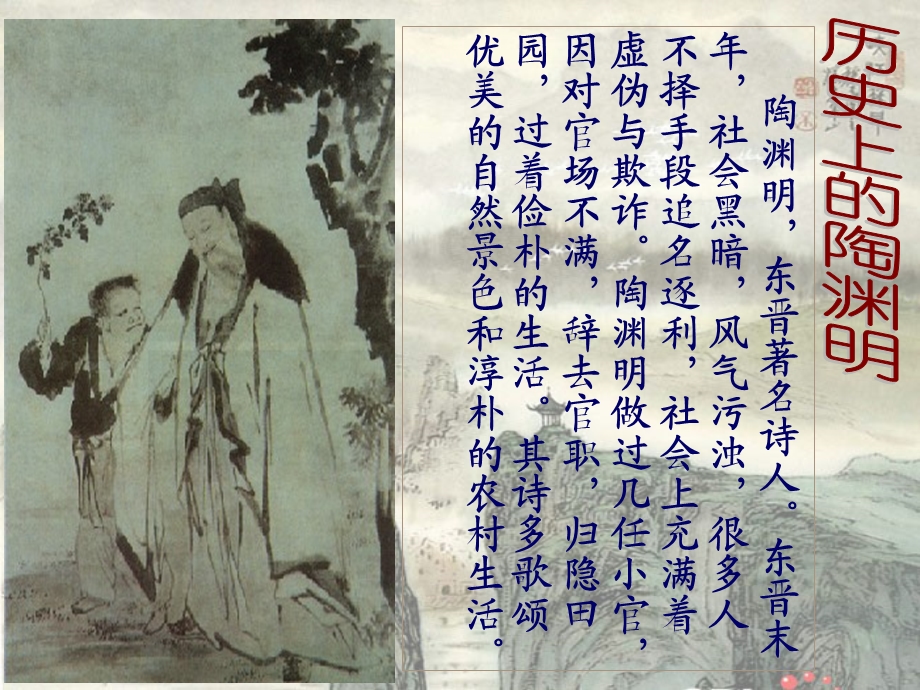 历史上的陶渊明
陶渊明，东晋著名诗人。东晋末
年，社会黑暗，风气污浊，很多人
不择手段追名逐利，社会上充满着
虚伪与欺诈。陶渊明做过几任小官，
因对官场不满，辞去官职，归隐田
园，过着俭朴的生活。其诗多歌颂
优美的自然景色和淳朴的农村生活。